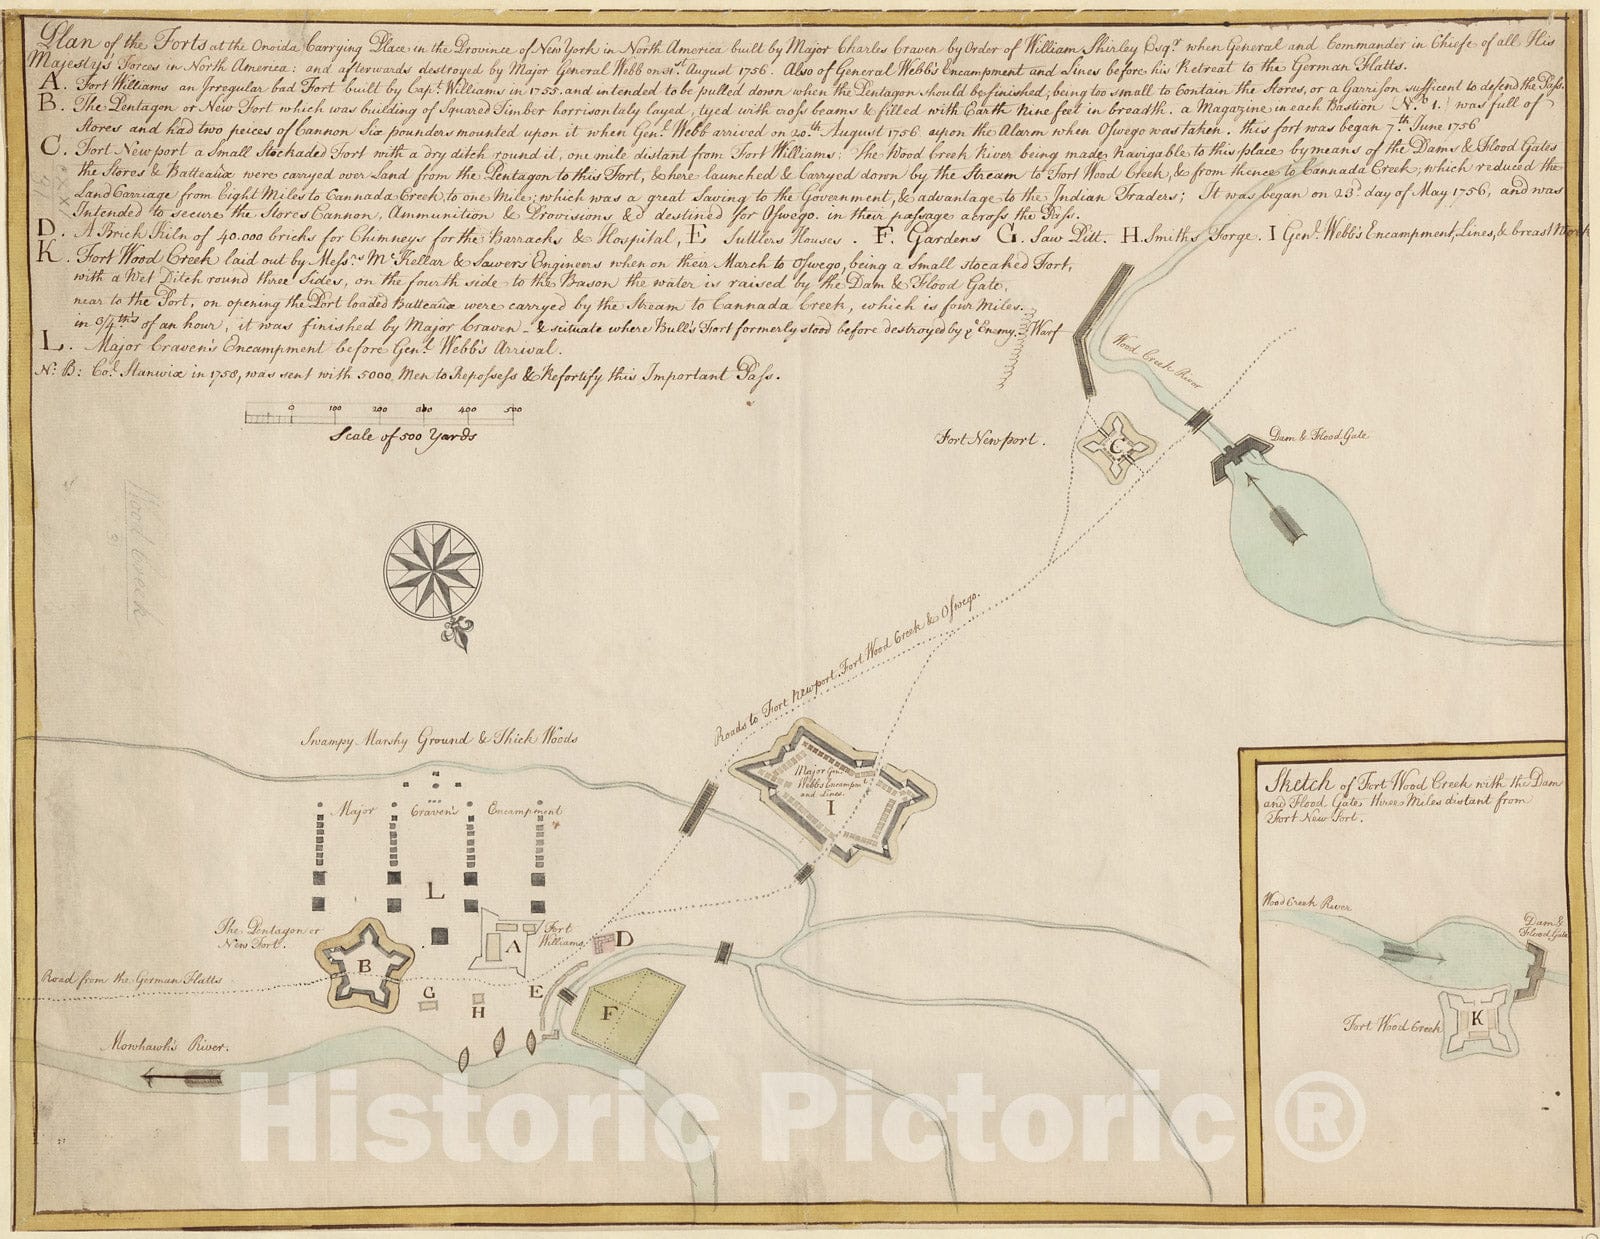 Plan of the Forts at the Onoida Carrying Place in the Province of New York in North America built by Major Charles Craven by Order of William Shirley Esqr. when General and Commander in Chiefe of all His
Majestys Forces in North America: and afterwards destroyed by Major General Webb on 31st. August 1756. Also of General Webb's Encampment and Lines before his Retreat to the German Flatts.
A. Fort Williams an Irregular bad Fort built by Capt. Williams in 1755. and intended to be pulled down when the Pentagon should be finished, being too small to Contain the Stores, or a Garrison sufficent to defend the Pass.
B. The Pentagon or New Fort which was building of Squared Timber horrisontaly layed, tyed with cross beams & filled with Earth Nine feet in breadth. a Magazine in each Bastion (No. 1.) was full of
Stores and had two peices of Cannon Six pounders mounted upon it when Genl. Webb arrived on 20th. August 1756 upon the Alarm when Oswego was taken. this fort was began 7th. June 1756
C. Fort Newport a Small Stockaded Fort with a dry ditch round it, one mile distant from Fort Williams: The Wood Creek River being made Navigable to this place by means of the Dams & Flood Gates
the Stores & Batteaux were carryed over Land from the Pentagon to this Fort, & here launched & Carryed down by the Stream to Fort Wood Creek, & from thence to Cannada Creek; which reduced the
Land Carriage from Eight Miles to Cannada Creek, to one Mile; which was a great Saving to the Government, & advantage to the Indian Traders; It was began on 23d. day of May 1756, and was
Intended to secure the Stores Cannon, Ammunition & Provisions &c destined for Oswego. in their passage across the Pass.
D. A Brick Kiln of 40.000 bricks for Chimneys for the Barracks & Hospital, E Suttlers Houses. F. Gardens G. Saw Pitt. H. Smiths Forge. I Genl. Webb's Encampment, Lines, & breast Work
K. Fort Wood Creek laid out by Messrs. McKellar & Sowers Engineers when on their March to Oswego, being a Small stocaked Fort,
with a Wet Ditch round three Sides, on the fourth side to the Bason the water is raised by the Dam & Flood Gate,
near to the Fort, on opening the Port loaded Batteaux were carryed by the Stream to Cannada Creek, which is four Miles.
in 3/4ths of an hour, it was finished by Major Craven - & situate where Bull's Fort formerly stood before destroyed by ye Enemy.
Warf
L. Major Craven's Encampment before Genl. Webb's Arrival.
N: B: Col. Stanwix in 1758, was sent with 5000 Men to Repossess & Refortify this Important Pass.
0 100 200 300 400 500
Scale of 500 Yards
Wood Creek River
Fort Newport.
C
Dam & Flood Gate
Wood Creek
Roads to Fort Newport. Fort Wood Creek & Oswego.
Swampy Marshy Ground & Thick Woods
Major Genl.
Webb's Encampmt
and Lines.
I
Major Craven's Encampment
L
The Pentagon or
New Fort.
B
A
Fort
Williams
D
Road from the German Flatts
G
H
E
F
Mowhawk's River.
Sketch of Fort Wood Creek with the Dam
and Flood Gate, three Miles distant from
Fort New Port.
Wood Creek River
Dam &
Flood Gate
Fort Wood Creek
K
Historic Pictoric ®